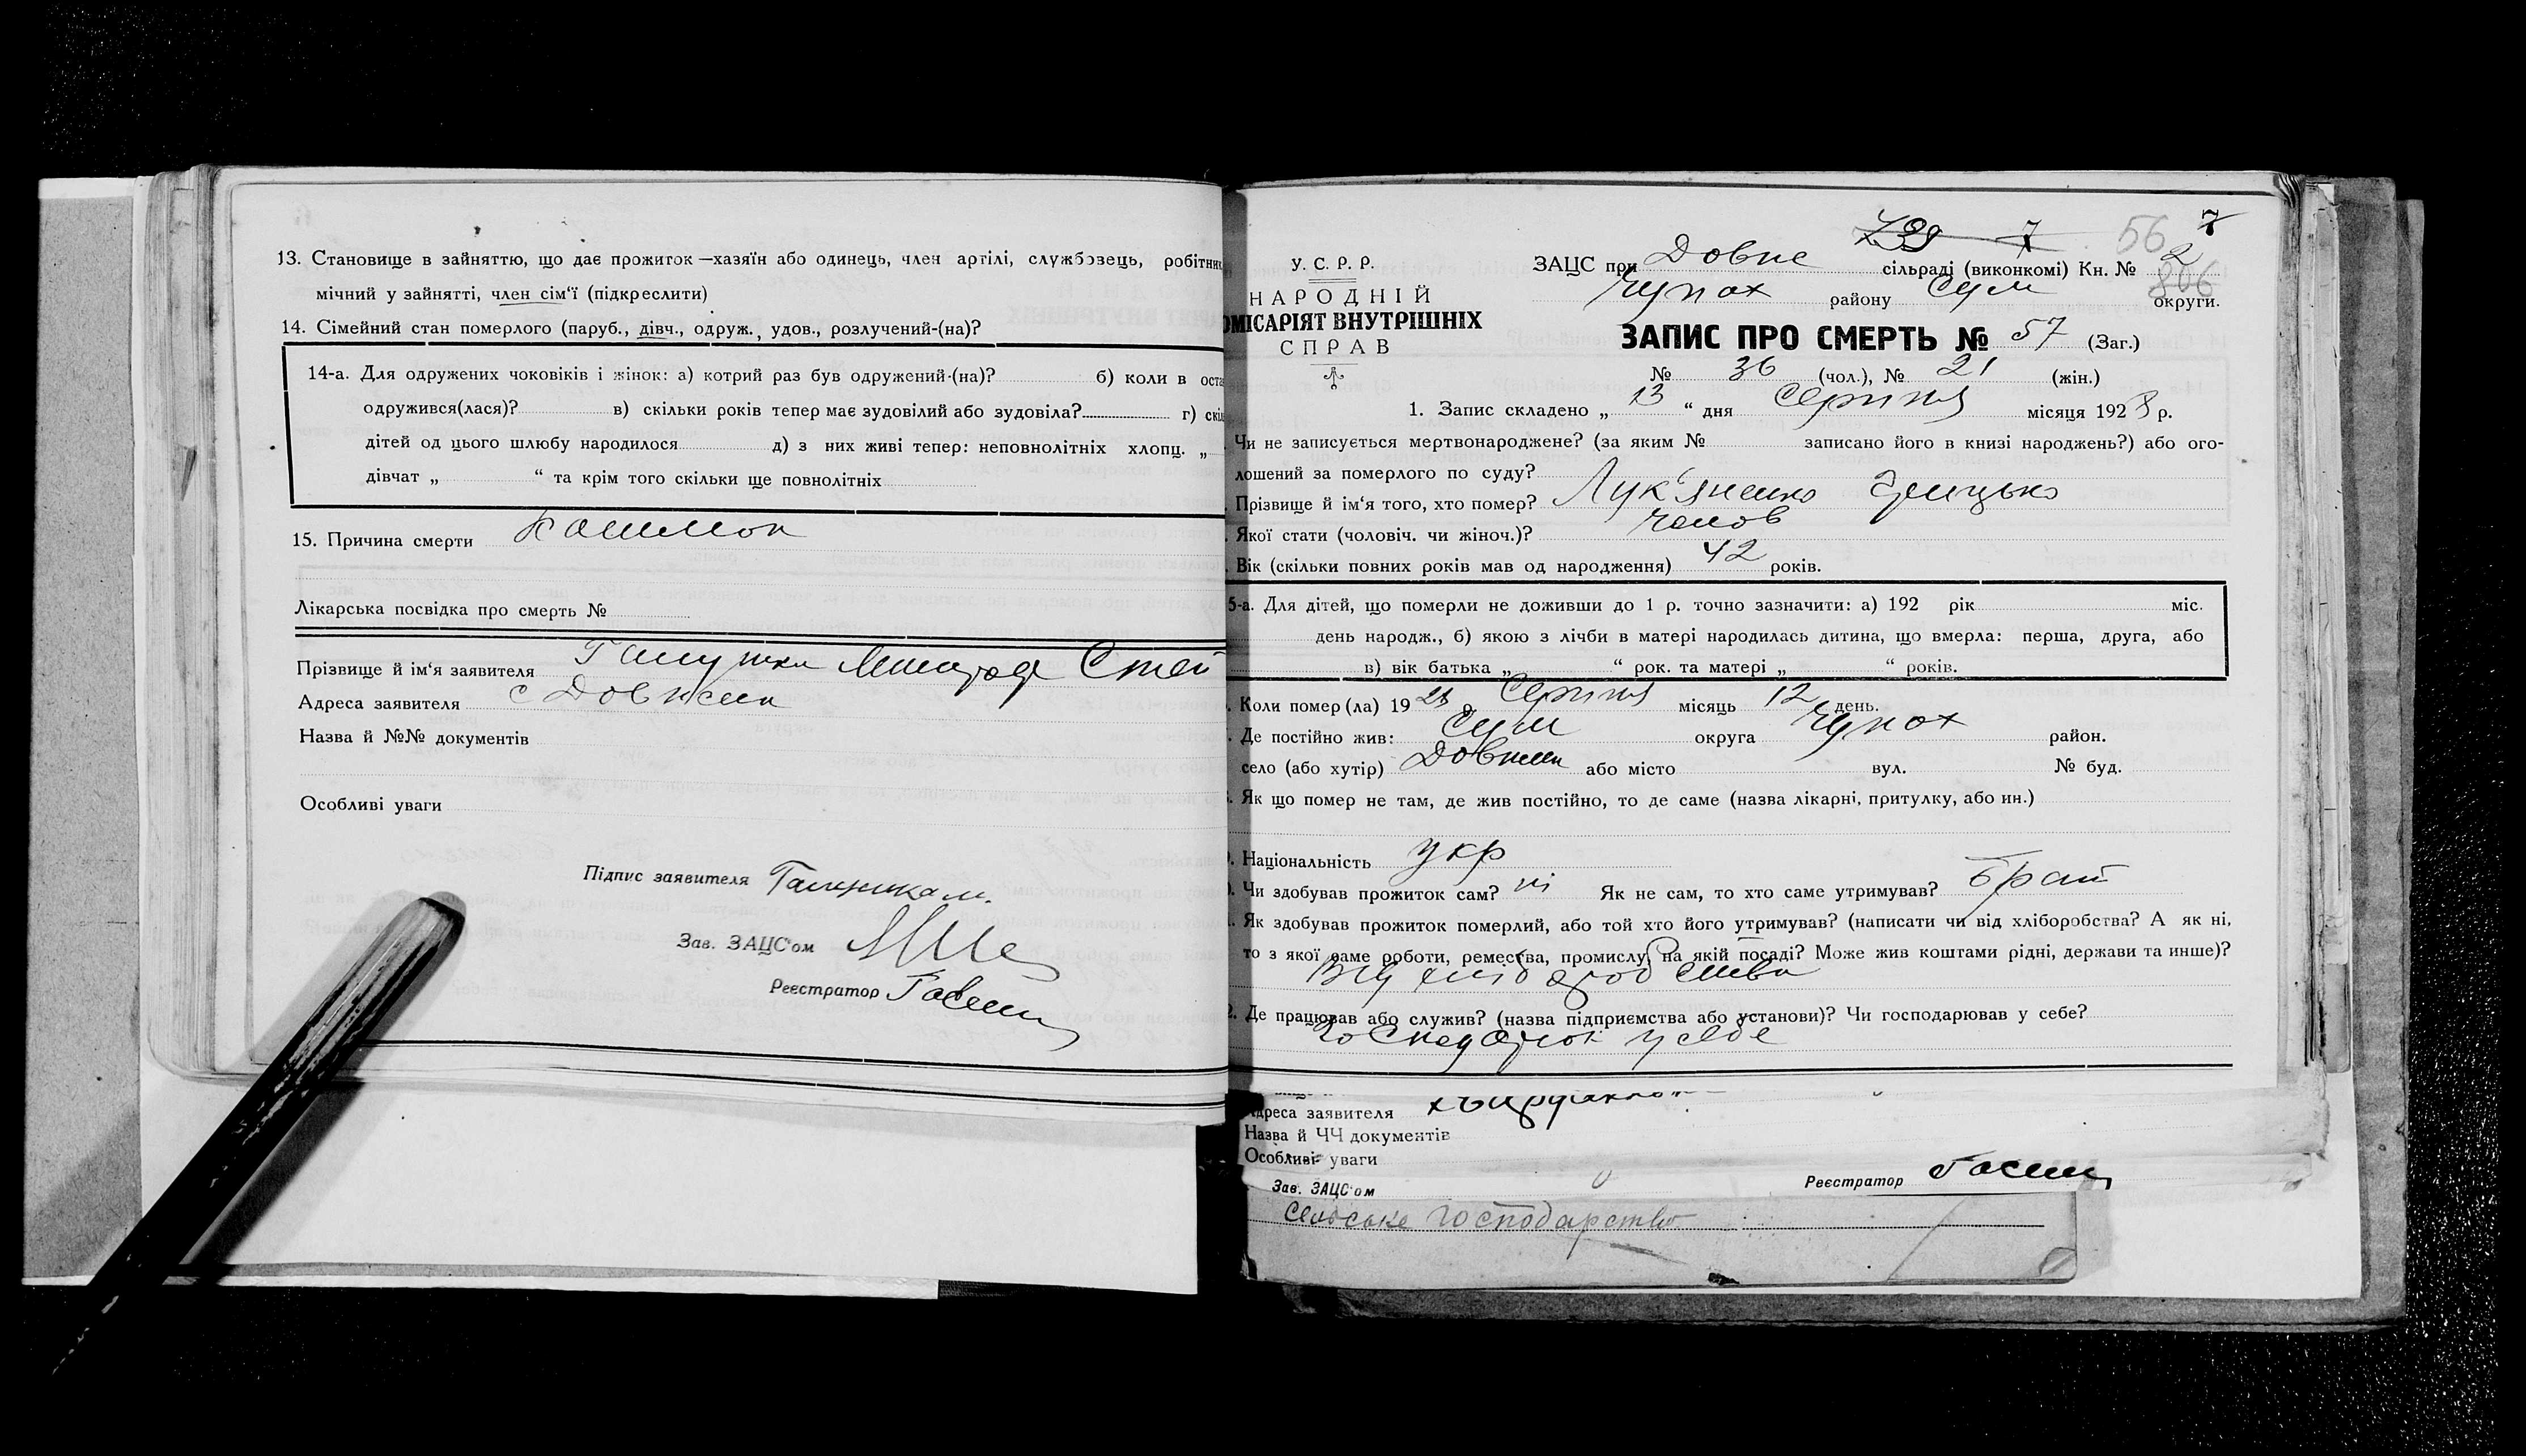 13. Становище в зайняттю, що дає прожиток—хазяїн або одинець, член артілі, службовець, робітник
мічний у зайнятті, член сім'ї (підкреслити)
14. Сімейний стан померлого (паруб., дівч., одруж., удов., розлучений-(на)?
14-а. Для одружених чоковіків і жінок: а) котрий раз був одружений-(на)? б) коли в оста
одружився(лася)? в) скільки років тепер має зудовілий або зудовіла? г) скі
дітей од цього шлюбу народилося д) з них живі тепер: неповнолітніх хлопц. „
дівчат „ “ та крім того скільки ще повнолітніх
15. Причина смерти Кашлюк
Лікарська посвідка про смерть №
Прізвище й ім'я заявителя
Адреса заявителя с Довжик
Назва й №№ документів
Особливі уваги
Підпис заявителя
Зав. ЗАЦС'ом
Реєстратор
739 7 56 7
У. С. Р. Р.
НАРОДНІЙ
ОМІСАРІЯТ ВНУТРІШНІХ
СПРАВ
ЗАЦС при Довже сільраді (виконкомі) Кн. № 2
806
Чупах району Сум округи.
ЗАПИС ПРО СМЕРТЬ № 57 (Заг.)
№ 36 (чол.), № 21 (жін.)
1. Запис складено „ 13 “ дня Серпня місяця 1928 р.
Чи не записується мертвонароджене? (за яким № записано його в книзі народжень?) або ого-
лошений за померлого по суду?
Прізвище й ім'я того, хто помер? Лук'яненко Грицько
Якої стати (чоловіч. чи жіноч.)? чолов
Вік (скільки повних років мав од народження) 42 років.
5-а. Для дітей, що померли не доживши до 1 р. точно зазначити: а) 192 рік міс.
день народж., б) якою з лічби в матері народилась дитина, що вмерла: перша, друга, або
в) вік батька „ “ рок. та матері „ “ років.
Коли помер(ла) 1928 р. Серпня місяць 12 день.
Де постійно жив: Сум округа Чупах район.
село (або хутір) Довжик або місто вул. № буд.
Як що помер не там, де жив постійно, то де саме (назва лікарні, притулку, або ин.)
Національність укр
Чи здобував прожиток сам? ні Як не сам, то хто саме утримував? брат
Як здобував прожиток померлий, або той хто його утримував? (написати чи від хліборобства? А як ні,
то з якої саме роботи, ремества, промислу, на якій посаді? Може жив коштами рідні, держави та инше)?
Від хліборобства
2. Де працював або служив? (назва підприємства або установи)? Чи господарював у себе?
у себе
Адреса заявителя
Назва й ЧЧ документів
Особливі уваги
Зав. ЗАЦС'ом Реєстратор
Сельське господарство